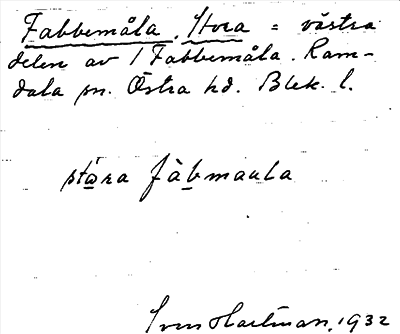 Fabbemåla, Stora = västra
delen av 1 Fabbemåla. Ram-
dala sn. Östra hd. Blek. l.
ståra fàbmaula
Sven Hartman, 1932